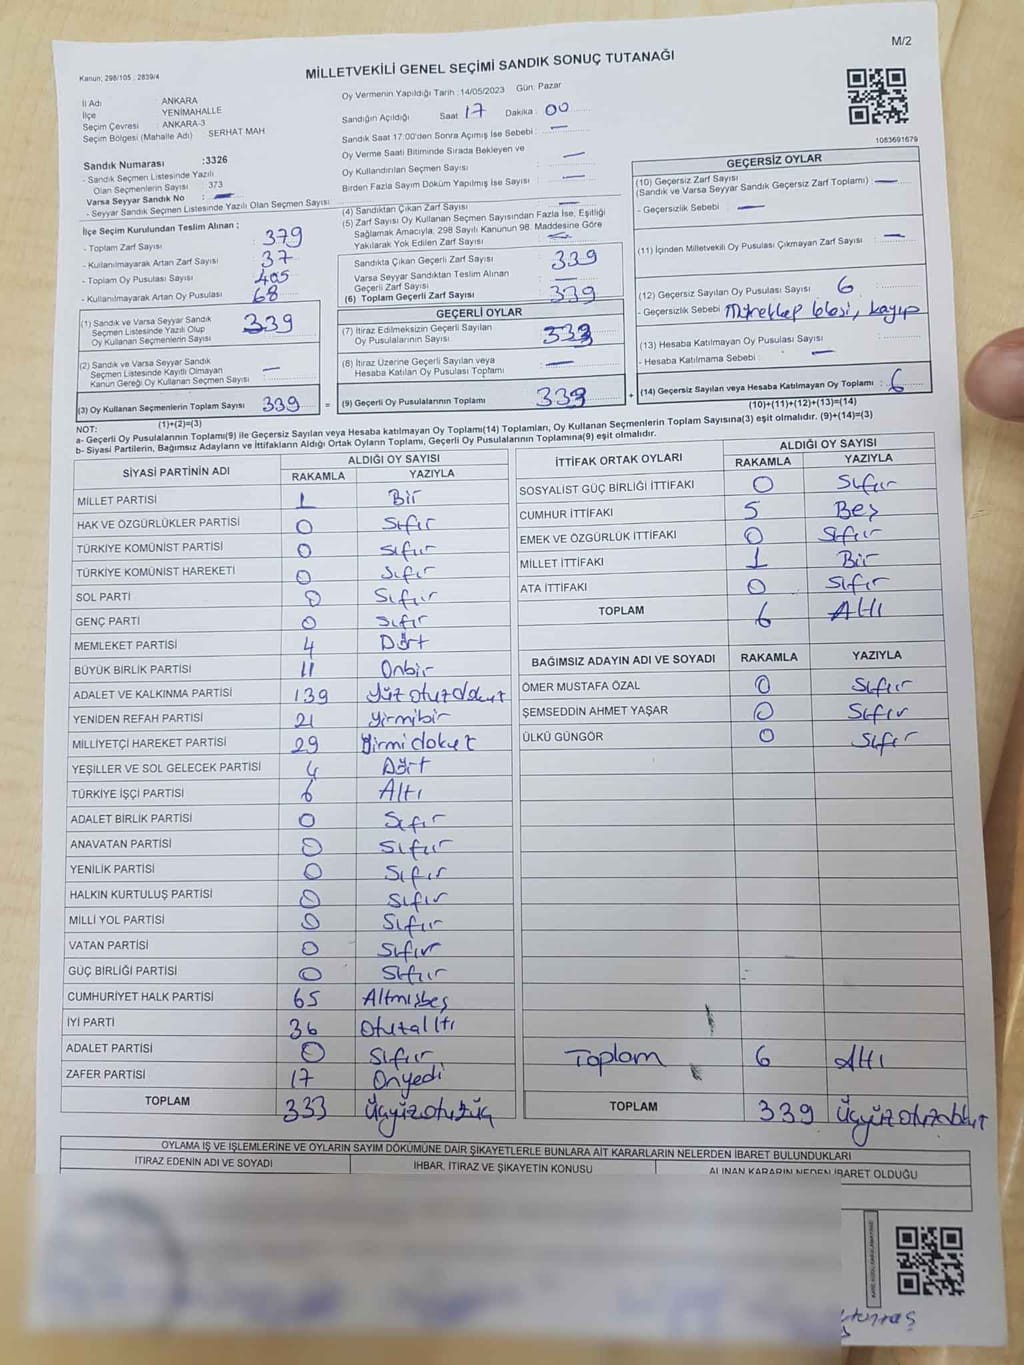 M/2
Kanun; 298/105 , 2839/4
MİLLETVEKİLİ GENEL SEÇİMİ SANDIK SONUÇ TUTANAĞI
İl Adı ANKARA
İlçe YENİMAHALLE
Seçim Çevresi ANKARA-3
Seçim Bölgesi (Mahalle Adı) SERHAT MAH
Sandık Numarası :3326
- Sandık Seçmen Listesinde Yazılı
Olan Seçmenlerin Sayısı 373
Varsa Seyyar Sandık No : —
- Seyyar Sandık Seçmen Listesinde Yazılı Olan Seçmen Sayısı :
Oy Vermenin Yapıldığı Tarih :14/05/2023 Gün: Pazar
Sandığın Açıldığı Saat : 17 Dakika : 00
Sandık Saat 17:00'den Sonra Açımış İse Sebebi : —
Oy Verme Saati Bitiminde Sırada Bekleyen ve
Oy Kullandırılan Seçmen Sayısı : —
Birden Fazla Sayım Döküm Yapılmış İse Sayısı : —
1083691679
İlçe Seçim Kurulundan Teslim Alınan ;
- Toplam Zarf Sayısı : 379
- Kullanılmayarak Artan Zarf Sayısı : 37
- Toplam Oy Pusulası Sayısı : 405
- Kullanılmayarak Artan Oy Pusulası : 68
(1) Sandık ve Varsa Seyyar Sandık
Seçmen Listesinde Yazılı Olup
Oy Kullanan Seçmenlerin Sayısı : 339
(2) Sandık ve Varsa Seyyar Sandık
Seçmen Listesinde Kayıtlı Olmayan
Kanun Gereği Oy Kullanan Seçmen Sayısı : —
(3) Oy Kullanan Seçmenlerin Toplam Sayısı : 339
(1)+(2)=(3)
(4) Sandıktan Çıkan Zarf Sayısı : —
(5) Zarf Sayısı Oy Kullanan Seçmen Sayısından Fazla İse, Eşitliği
Sağlamak Amacıyla; 298 Sayılı Kanunun 98. Maddesine Göre
Yakılarak Yok Edilen Zarf Sayısı : —
Sandıkta Çıkan Geçerli Zarf Sayısı : 339
Varsa Seyyar Sandıktan Teslim Alınan
Geçerli Zarf Sayısı : —
(6) Toplam Geçerli Zarf Sayısı : 339
GEÇERLİ OYLAR
(7) İtiraz Edilmeksizin Geçerli Sayılan
Oy Pusulalarının Sayısı : 333
(8) İtiraz Üzerine Geçerli Sayılan veya
Hesaba Katılan Oy Pusulası Toplamı : —
= (9) Geçerli Oy Pusulalarının Toplamı : 333 +
GEÇERSİZ OYLAR
(10) Geçersiz Zarf Sayısı
(Sandık ve Varsa Seyyar Sandık Geçersiz Zarf Toplamı) : —
- Geçersizlik Sebebi : —
(11) İçinden Milletvekili Oy Pusulası Çıkmayan Zarf Sayısı : —
(12) Geçersiz Sayılan Oy Pusulası Sayısı : 6
- Geçersizlik Sebebi : Mürekkep lekesi, kayıp
(13) Hesaba Katılmayan Oy Pusulası Sayısı :
- Hesaba Katılmama Sebebi : —
(14) Geçersiz Sayılan veya Hesaba Katılmayan Oy Toplamı : 6
(10)+(11)+(12)+(13)=(14)
NOT:
a- Geçerli Oy Pusulalarının Toplamı(9) ile Geçersiz Sayılan veya Hesaba Katılmayan Oy Toplamı(14) Toplamları, Oy Kullanan Seçmenlerin Toplam Sayısına(3) eşit olmalıdır. (9)+(14)=(3)
b- Siyasi Partilerin, Bağımsız Adayların ve İttifakların Aldığı Ortak Oyların Toplamı, Geçerli Oy Pusulalarının Toplamına(9) eşit olmalıdır.
SİYASİ PARTİNİN ADI ALDIĞI OY SAYISI
RAKAMLA YAZIYLA
MİLLET PARTİSİ 1 Bir
HAK VE ÖZGÜRLÜKLER PARTİSİ 0 Sıfır
TÜRKİYE KOMÜNİST PARTİSİ 0 Sıfır
TÜRKİYE KOMÜNİST HAREKETİ 0 Sıfır
SOL PARTİ 0 Sıfır
GENÇ PARTİ 0 Sıfır
MEMLEKET PARTİSİ 4 Dört
BÜYÜK BİRLİK PARTİSİ 11 Onbir
ADALET VE KALKINMA PARTİSİ 139 Yüz otuzdokuz
YENİDEN REFAH PARTİSİ 21 Yirmibir
MİLLİYETÇİ HAREKET PARTİSİ 29 Yirmidokuz
YEŞİLLER VE SOL GELECEK PARTİSİ 4 Dört
TÜRKİYE İŞÇİ PARTİSİ 6 Altı
ADALET BİRLİK PARTİSİ 0 Sıfır
ANAVATAN PARTİSİ 0 Sıfır
YENİLİK PARTİSİ 0 Sıfır
HALKIN KURTULUŞ PARTİSİ 0 Sıfır
MİLLİ YOL PARTİSİ 0 Sıfır
VATAN PARTİSİ 0 Sıfır
GÜÇ BİRLİĞİ PARTİSİ 0 Sıfır
CUMHURİYET HALK PARTİSİ 65 Altmışbeş
İYİ PARTİ 36 Otuzaltı
ADALET PARTİSİ 0 Sıfır
ZAFER PARTİSİ 17 Onyedi
TOPLAM 333 Üçyüzotuzüç
İTTİFAK ORTAK OYLARI ALDIĞI OY SAYISI
RAKAMLA YAZIYLA
SOSYALİST GÜÇ BİRLİĞİ İTTİFAKI 0 Sıfır
CUMHUR İTTİFAKI 5 Beş
EMEK VE ÖZGÜRLÜK İTTİFAKI 0 Sıfır
MİLLET İTTİFAKI 1 Bir
ATA İTTİFAKI 0 Sıfır
TOPLAM 6 Altı
BAĞIMSIZ ADAYIN ADI VE SOYADI RAKAMLA YAZIYLA
ÖMER MUSTAFA ÖZAL 0 Sıfır
ŞEMSEDDİN AHMET YAŞAR 0 Sıfır
ÜLKÜ GÜNGÖR 0 Sıfır
Toplam 6 Altı
TOPLAM 339 Üçyüzotuzdokuz
OYLAMA İŞ VE İŞLEMLERİNE VE OYLARIN SAYIM DÖKÜMÜNE DAİR ŞİKAYETLERLE BUNLARA AİT KARARLARIN NELERDEN İBARET BULUNDUKLARI
İTİRAZ EDENİN ADI VE SOYADI İHBAR, İTİRAZ VE ŞİKAYETİN KONUSU ALINAN KARARIN NEDEN İBARET OLDUĞU